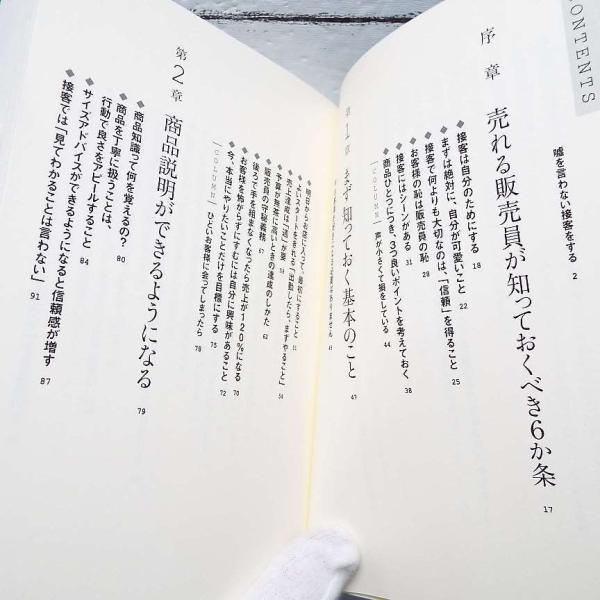 CONTENTS
嘘を言わない接客をする 2
序章 売れる販売員が知っておくべき6か条 17
接客は自分のためにする 18
まずは絶対に、自分が可愛いこと 22
接客で何よりも大切なのは、「信頼」を得ること 25
お客様の恥は販売員の恥 28
接客にはシーンがある 31
商品ひとつにつき、3つ良いポイントを考えておく 38
COLUMN 声が小さくて損をしている 44
第1章 まず知っておく基本のこと 47
明日からお店に入って、最初にすること
よいスタートをきれる「出勤したら、まずやること」
売上達成は「週」が要
予算が無茶に高いときの達成のしかた 62
販売員の守秘義務 67
後ろで手を組まなくなったら売上が120%になる 70
お客様を怖がらずにすむには自分に興味があること 72
今、本当にやりたいことだけを目標にする 75
COLUMN ひどいお客様に会ってしまったら 78
第2章 商品説明ができるようになる 79
商品知識って何を覚えるの? 80
商品を丁寧に扱うことは、
行動で良さをアピールすること 84
サイズアドバイスができるようになると信頼感が増す 87
接客では「見てわかることは言わない」 91